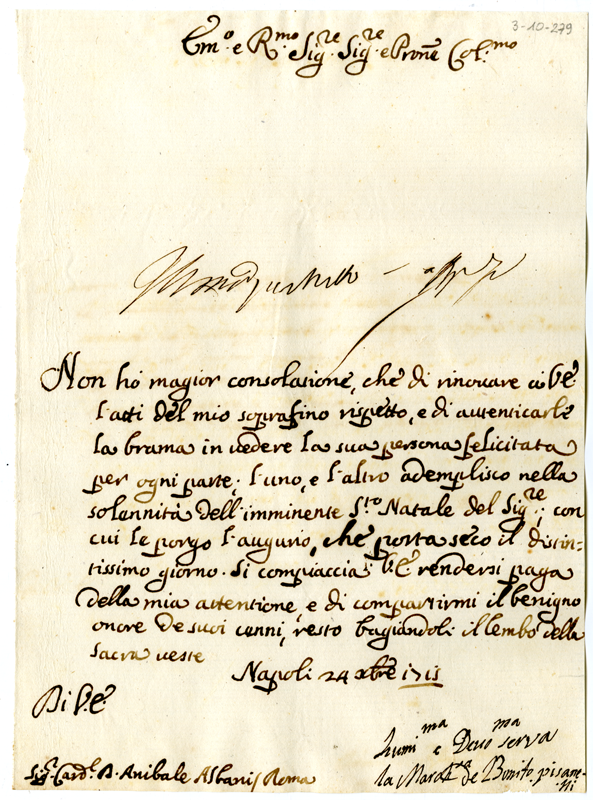 3-10-279
Em.o e R.mo Sig.re Sig.re e Prone Col.mo
Non hò magior consolatione, che di rinovare à V.E.
l'atti del mio soprafino rispetto, e di autenticarle
la brama in vedere la sua persona felicitata
per ogni parte; l'uno, e l'altro ademplisco nella
solennità dell'imminente S.to Natale del Sig.re; con
cui le porgo l'augurio, che porta seco il distin-
tissimo giorno. Si compiaccia V.E. rendersi paga
della mia attentione, e di compartirmi il benigno
onore de suoi cenni, resto bagiandoli il lembo della
sacra veste
Napoli 24 xbre 1715
Di V.E.
Humi.ma e Devo.ma serva
la March.sa de Bonito pisane-
lli
Sig.r Card.l D. Anibale Albani Roma